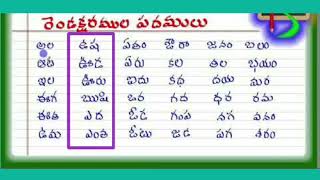 రెండక్షరముల పదములు
అల ఉష ఏతం ఔరా జనం బలు
ఊడ ఏరు కల తల భయం
ఇల ఊరు ఐదు కథ దయ సుర
ఈగ ఋషి ఒర గద ధర రమ
ఈత ఎర ఓడ గంప నగ వనం
ఉమ ఎంత ఓటు జడ పగ శరం